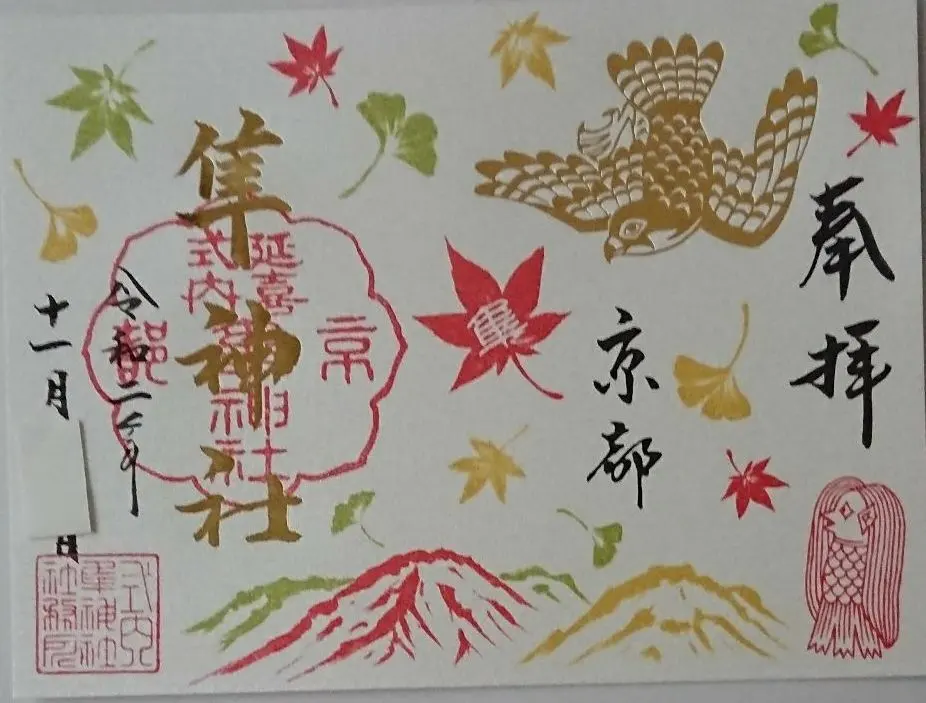 奉拝
京都
隼
京都
延喜
式内
隼神社
隼神社
令和二年
十一月
日
式内
隼神社
社務所